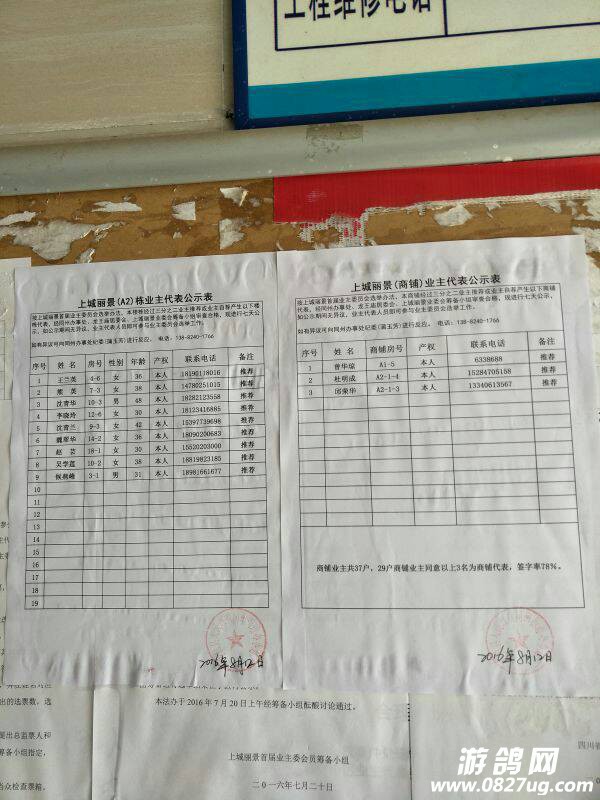 工程维修电话
上城丽景(A2)栋业主代表公示表
按上城丽景首届业主委员会选举办法，本楼栋经过三分之二业主推荐或业主自荐产生以下楼
栋代表，经同州办事处、龙王庙居委会、上城丽景业委会筹备小组审查合格，现进行七天公
示，如公示期间无异议，业主代表人员即可参与业主委员会选举工作。
如有异议可向同州办事处纪委(蒲玉芳)进行反应。 电话：138-8240-1766
序号 姓名 房号 性别 年龄 产权 联系电话 备注
1 王兰英 4-6 女 36 本人 18190118016 推荐
2 熊英 7-3 女 38 本人 14780251015 推荐
3 沈青华 10-3 男 48 本人 18282123558 推荐
4 李晓玲 12-6 女 30 本人 18123416885 推荐
5 沈青兰 9-3 女 42 本人 15397739698 推荐
6 魏翠华 14-2 女 36 本人 18090200683 推荐
7 赵芸 18-1 女 30 本人 15520203000 推荐
8 吴学莲 10-2 女 38 本人 18819823185 推荐
9 侯晓峰 3-1 男 31 本人 18981661677 推荐
10
11
12
13
14
15
16
17
18
19
2016年8月12日
上城丽景(商铺)业主代表公示表
按上城丽景首届业主委员会选举办法，本商铺经过三分之二业主推荐或业主自荐产生以下商铺
代表，经同州办事处、龙王庙居委会、上城丽景业委会筹备小组审查合格，现进行七天公示，
如公示期间无异议，业主代表人员即可参与业主委员会选举工作。
如有异议可向同州办事处纪委(蒲玉芳)进行反应。 电话：138-8240-1766
序号 姓名 商铺房号 产权 联系电话 备注
1 曾华琼 A1-5 本人 6338688 推荐
2 杜明成 A2-1-4 本人 15284705158 推荐
3 邱荣华 A2-1-3 本人 13340613567 推荐
商铺业主共37户，29户商铺业主同意以上3名为商铺代表，签字率78%。
2016年8月12日
出的选票数，选
提出总监票人和
筹备小组指定，
当众检查票箱。
本法办于2016年7月20日上午经筹备小组酝酿讨论通过。
上城丽景首届业主委会员筹备小组
二〇一六年七月二十日
四川省
游鸽网
www.0827ug.com